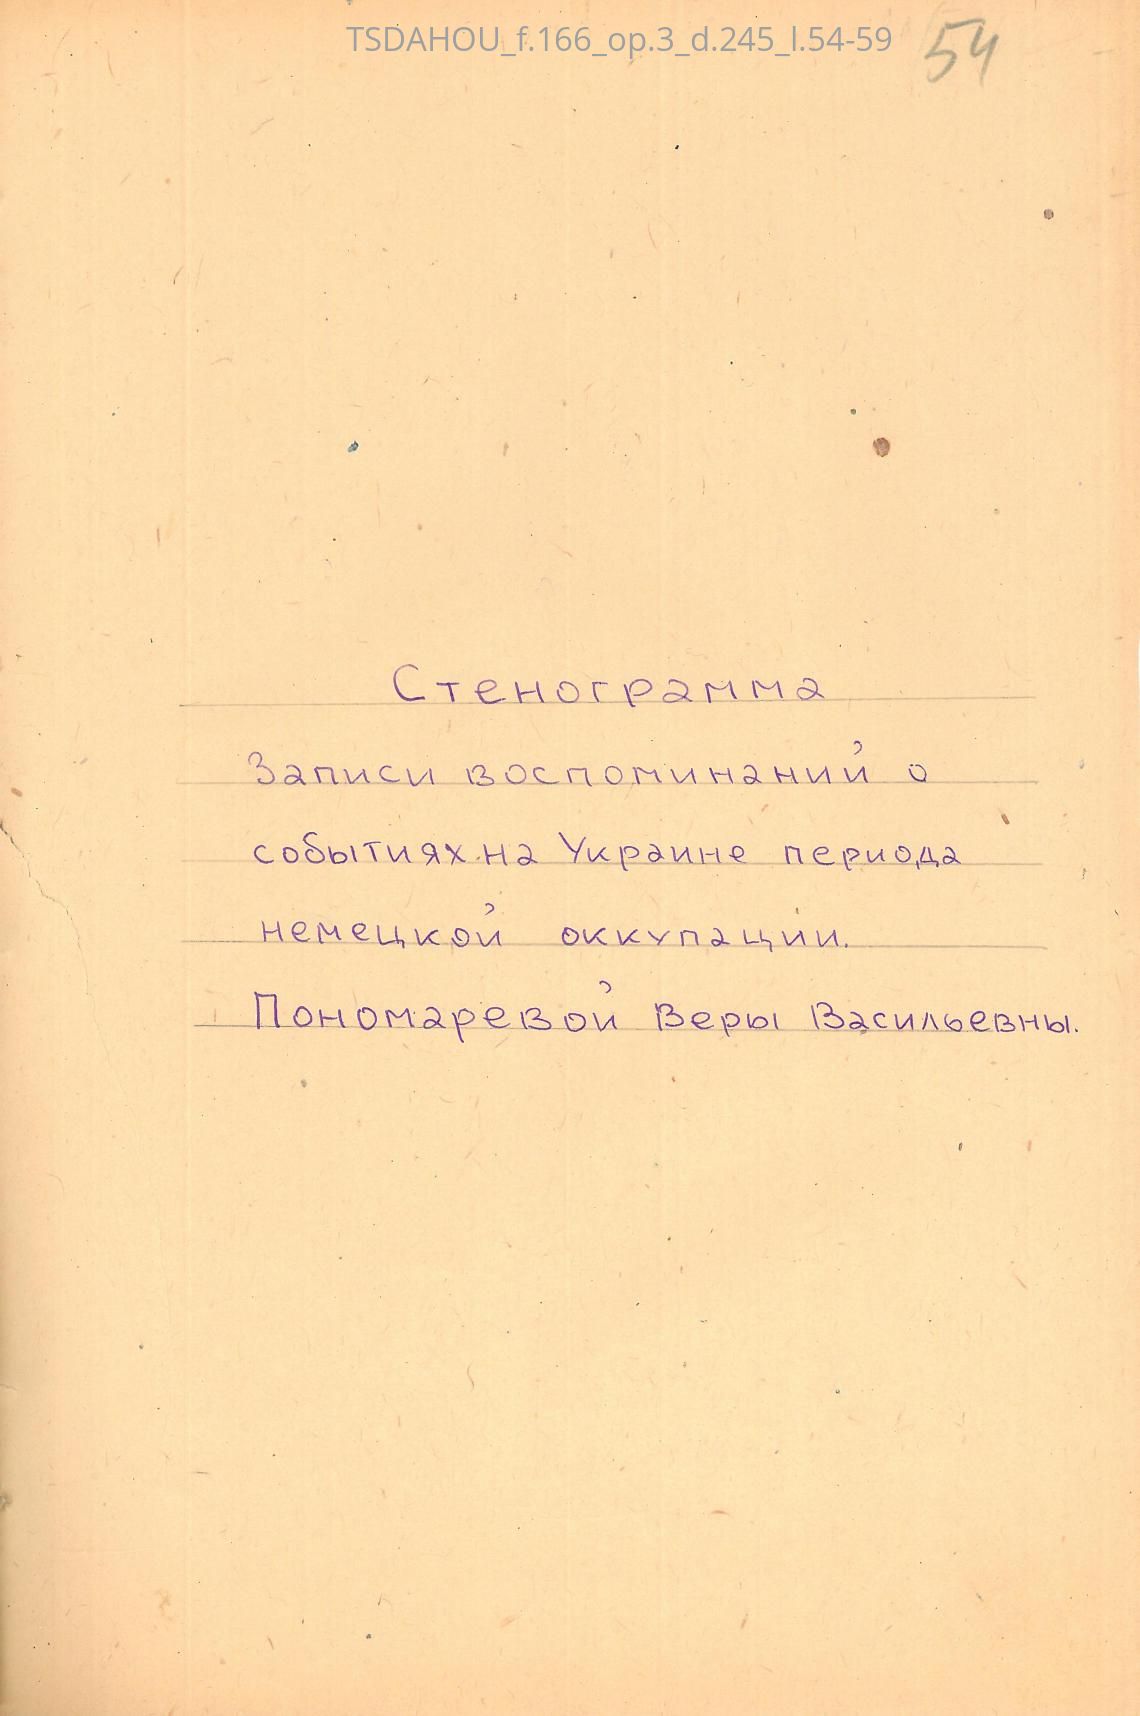 TSDAHOU_f.166_op.3_d.245_l.54-59
54
Стенограмма
Записи воспоминаний о
событиях на Украине периода
немецкой оккупации.
Пономаревой Веры Васильевны.